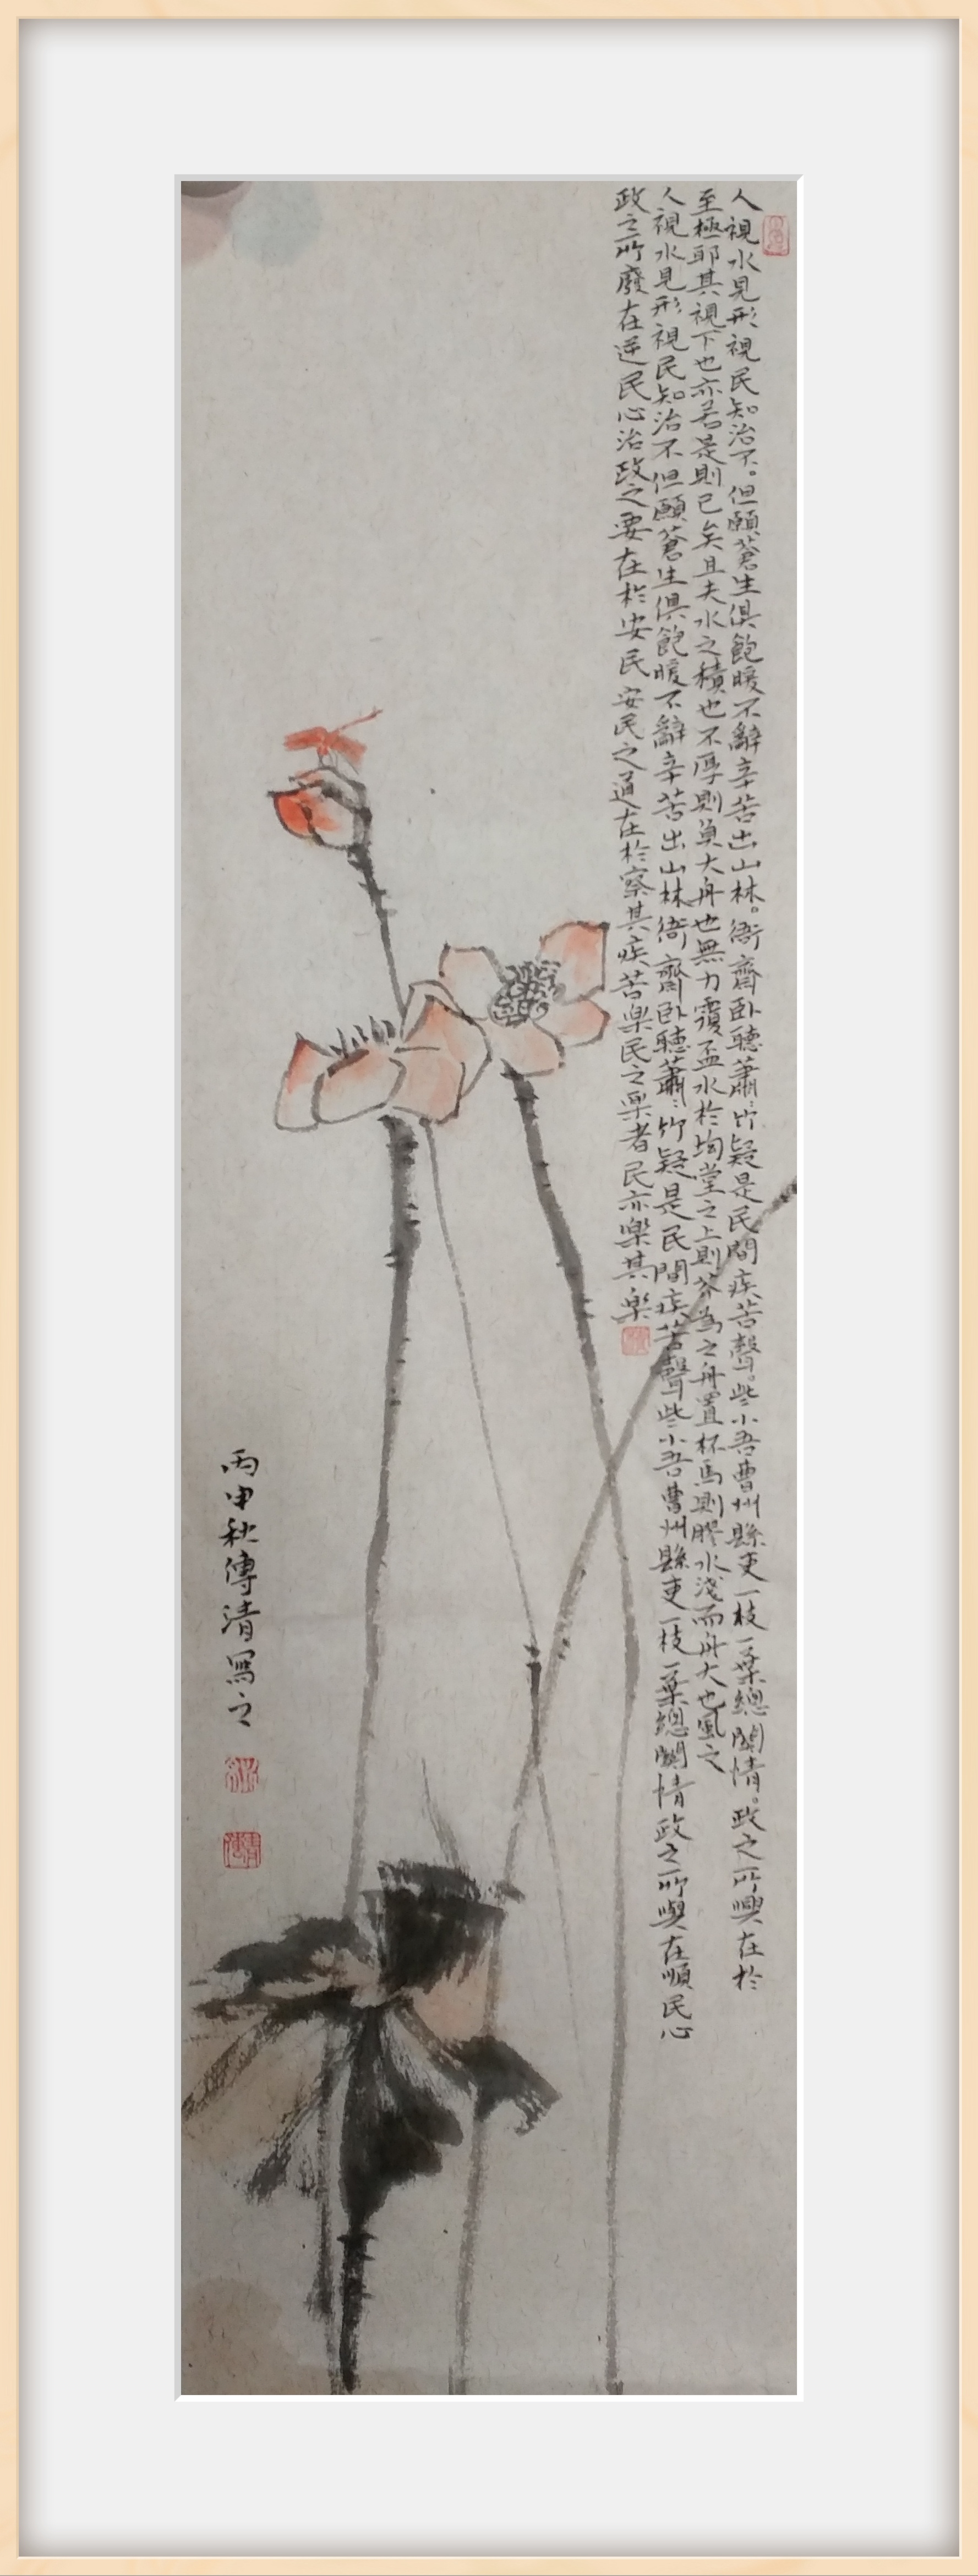 人視水見形視民知治不。但願蒼生俱飽暖不辭辛苦出山林。衙齋臥聽蕭:竹疑是民間疾苦聲。些小吾曹州縣吏一枝一葉總關情。政之所興在於
至極耶其視下也亦若是則已矣且夫水之積也不厚則負大舟也無力覆盃水於坳堂之上則芥為之舟置杯焉則膠水淺而舟大也風之
人視水見形視民知治不但願蒼生俱飽暖不辭辛苦出山林衙齋臥聽蕭:竹疑是民間疾苦聲些小吾曹州縣吏一枝一葉總關情政之所興在順民心
政之所廢在逆民心治政之要在於安民安民之道在於察其疾苦樂民之樂者民亦樂其樂
丙申秋傳清寫之